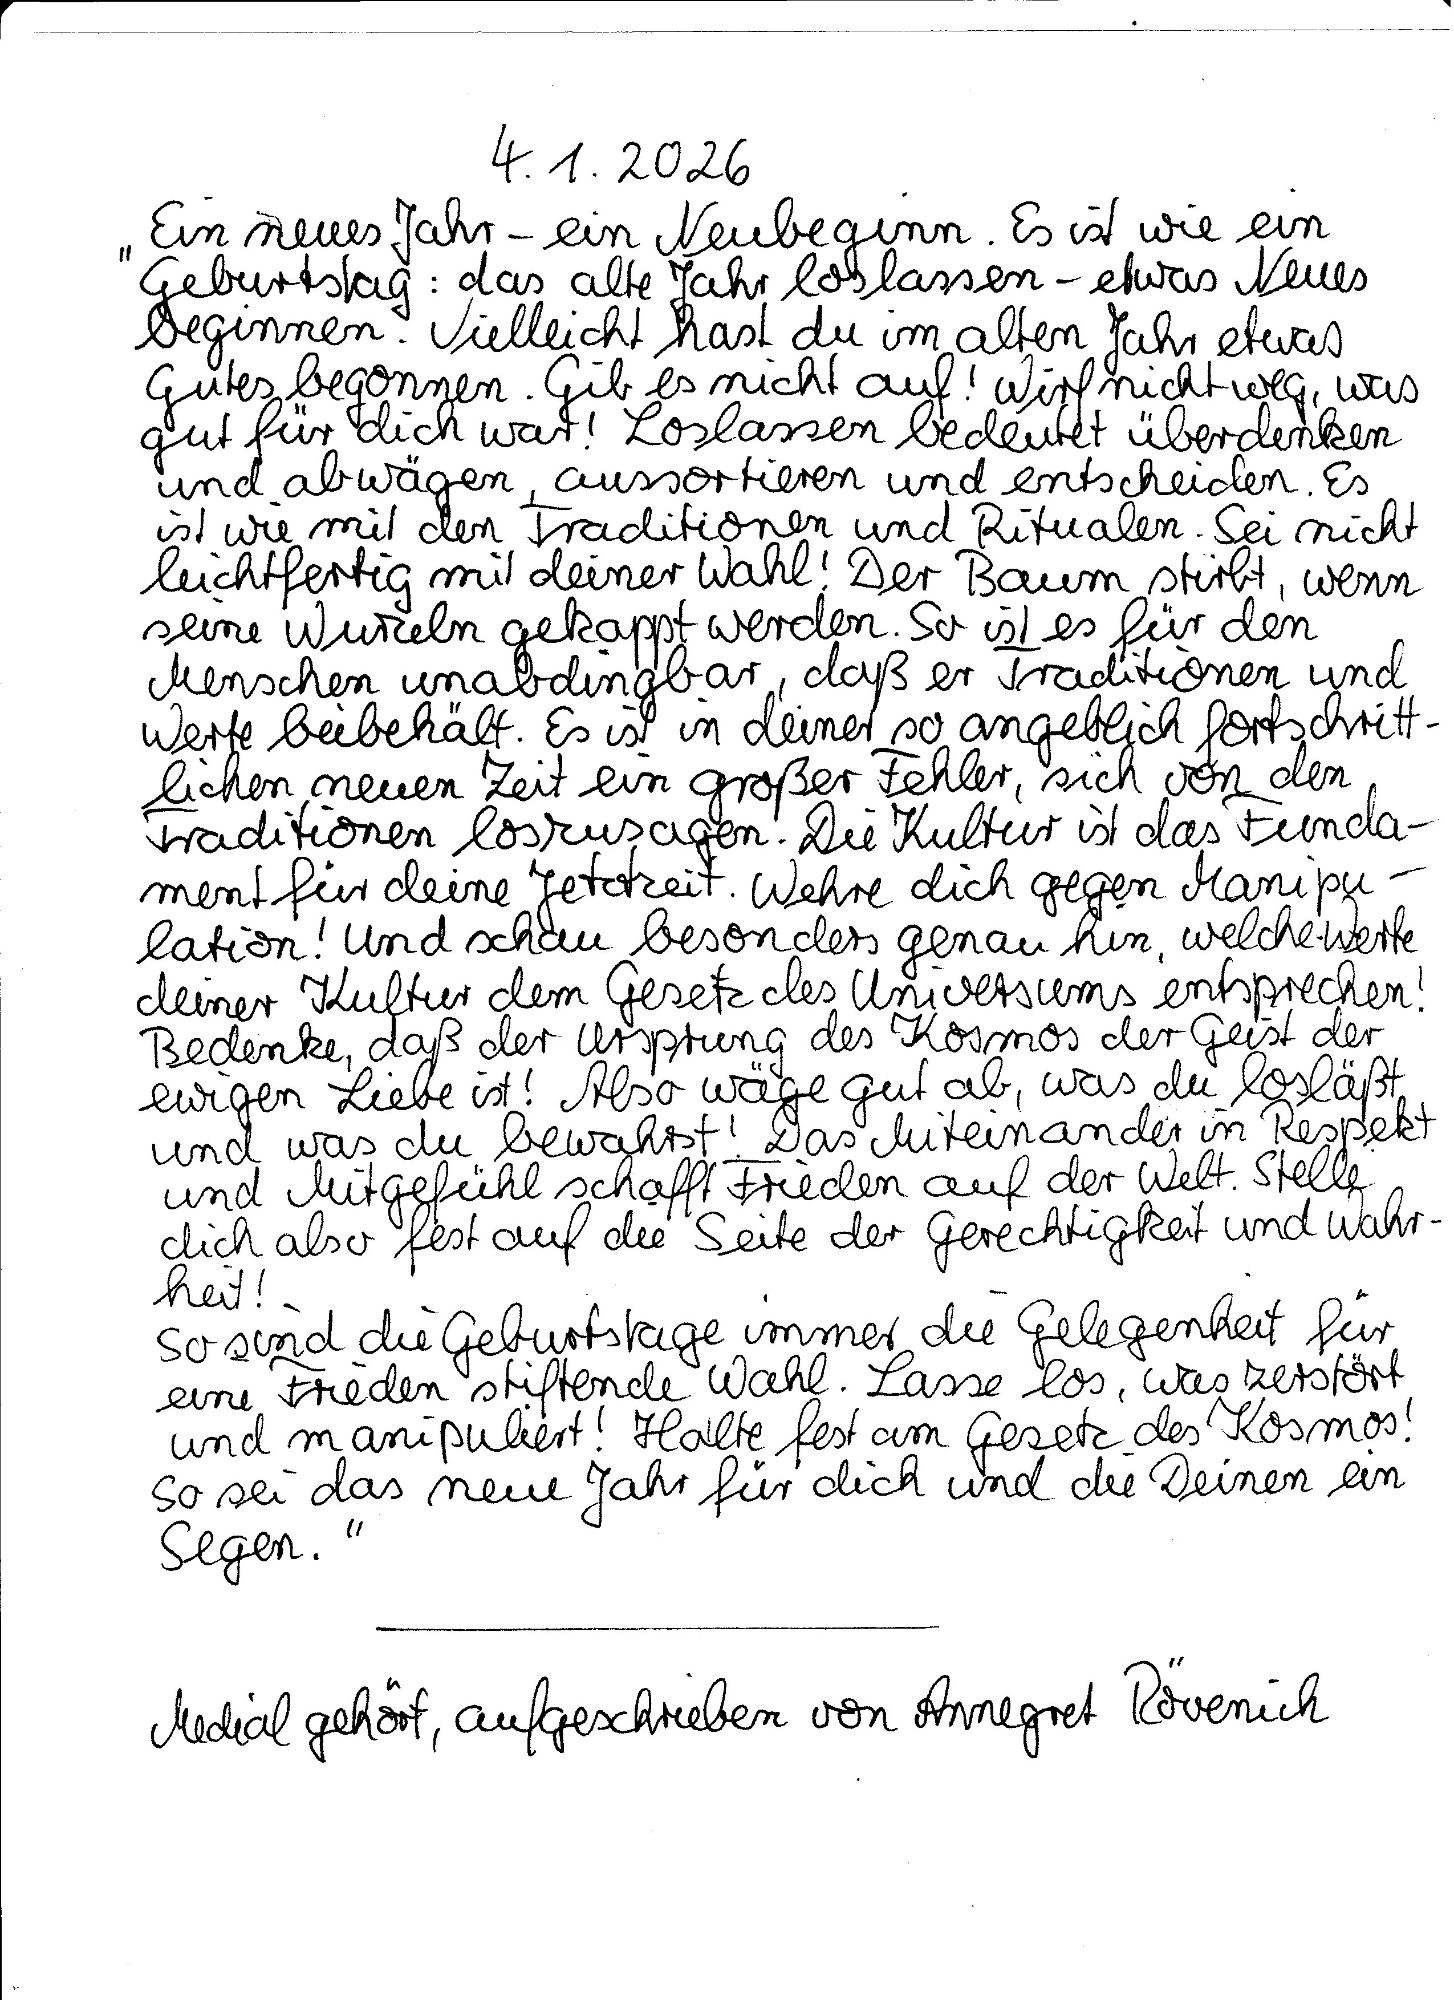 4.1.2026
„Ein neues Jahr – ein Neubeginn. Es ist wie ein
Geburtstag: das alte Jahr loslassen – etwas Neues
beginnen. Vielleicht hast du im alten Jahr etwas
Gutes begonnen. Gib es nicht auf! Wirf nicht weg, was
gut für dich war! Loslassen bedeutet überdenken
und abwägen, aussortieren und entscheiden. Es
ist wie mit den Traditionen und Ritualen. Sei nicht
leichtfertig mit deiner Wahl! Der Baum stirbt, wenn
seine Wurzeln gekappt werden. So ist es für den
Menschen unabdingbar, daß er Traditionen und
Werte beibehält. Es ist in deiner so angeblich fortschritt-
lichen, neuen Zeit ein großer Fehler, sich von den
Traditionen loszusagen. Die Kultur ist das Funda-
ment für deine Jetztzeit. Wehre dich gegen Manipu-
lation! Und schau besonders genau hin, welche Werte
deiner Kultur dem Gesetz des Universums entsprechen!
Bedenke, daß der Ursprung des Kosmos der Geist der
ewigen Liebe ist! Also wäge gut ab, was du losläßt
und was du bewahrst! Das Miteinander in Respekt
und Mitgefühl schafft Frieden auf der Welt. Stelle
dich also fest auf die Seite der Gerechtigkeit und Wahr-
heit!
So sind die Geburtstage immer die Gelegenheit für
eine Frieden stiftende Wahl. Lasse los, was zerstört
und manipuliert! Halte fest am Gesetz des Kosmos!
So sei das neue Jahr für dich und die Deinen ein
Segen."
Medial gehört, aufgeschrieben von Annegret Rövenich